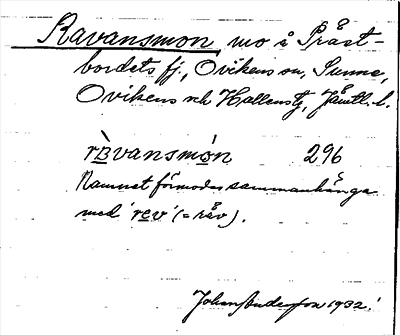 Ravansmon mo å Präst-
bordets fj., Ovikens sn, Sunne,
Ovikens och Hallens tg, Jämtl. l.
rɒ̀vansmòn 296
Namnet förmodas sammanhänga
med 'rev' (= räv).
Johan Anderson 1932.